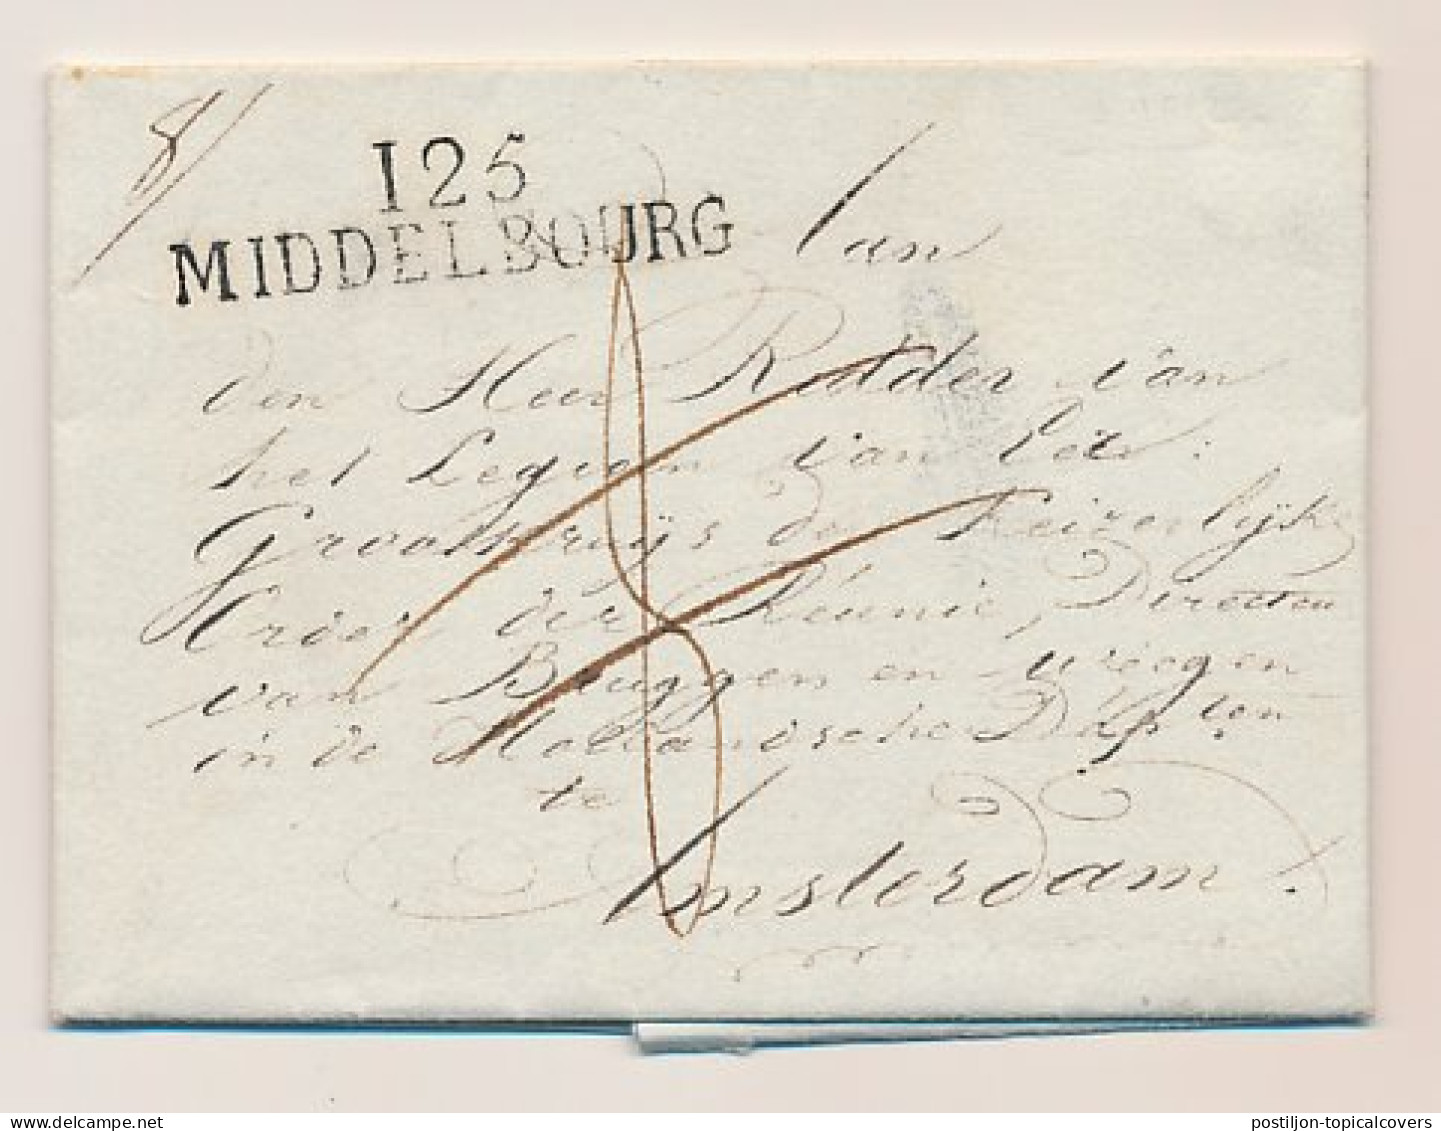 8/
125
MIDDELBOURG
Aan
den Heer Ridder van
het Legioen van Eer:
Grootkruijs der Keizerlijke
Order der Réunie, Directeur
van Bruggen en Weegen
in de Hollandsche Dep ten
te
Amsterdam.
postiljon-topicalcovers